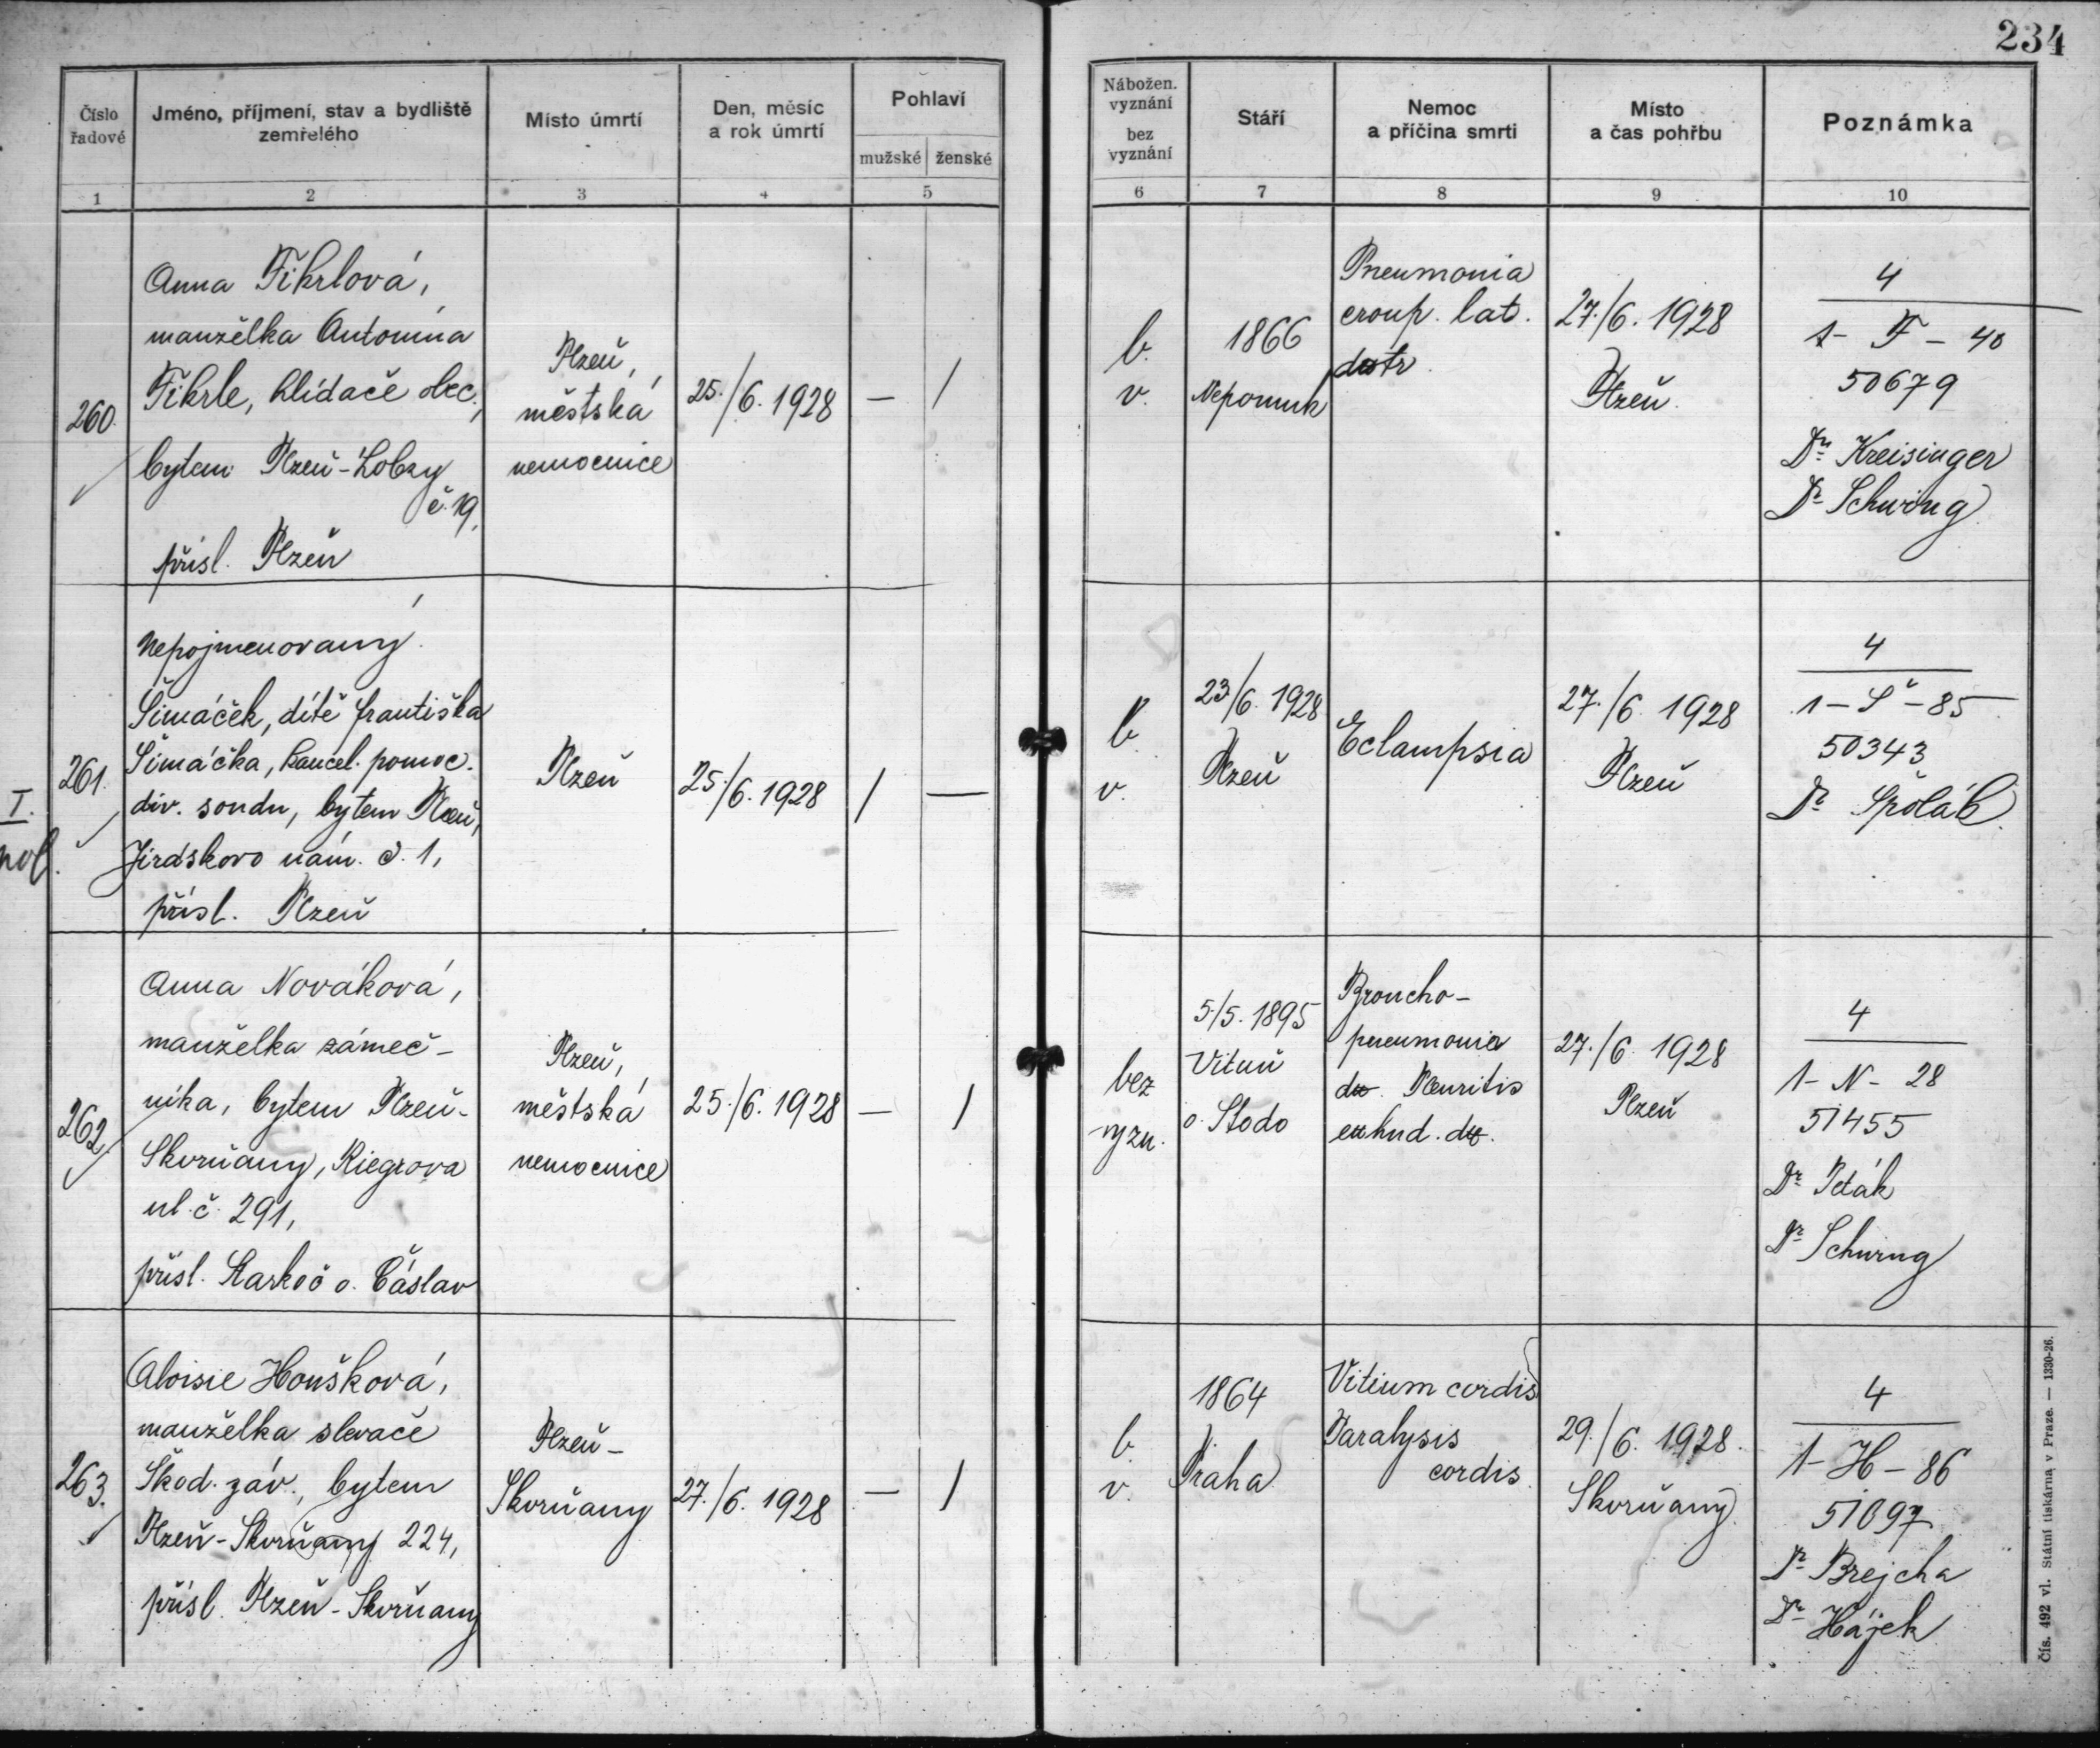 234
Číslo
řadové
Jméno, příjmení, stav a bydliště
zemřelého
Místo úmrtí
Den, měsíc
a rok úmrtí
Pohlaví
mužské ženské
Nábožen.
vyznání
bez
vyznání
Stáří
Nemoc
a příčina smrti
Místo
a čas pohřbu
Poznámka
1 2 3 4 5 6 7 8 9 10
260.
Anna Fikrlová,
manželka Antonína
Fikrle, hlídače obec.,
bytem Plzeň-Lobzy
č. 19,
přísl. Plzeň
Plzeň,
městská
nemocnice
25./6. 1928
— /
b.
v.
1866
Nepomuk
Pneumonia
croup. lat.
dextr.
27./6. 1928
Plzeň.
4
1 - F - 40
50679
Dr. Kreisinger
Dr. Schwing
I.
261.
Nepojmenovaný
Šimáček, dítě Františka
Šimáčka, kancel. pomoc.
div. soudu, bytem Plzeň,
Jiráskovo nám. č. 1,
přísl. Plzeň
Plzeň
25./6. 1928
/ —
b.
v.
23./6. 1928
Plzeň
Eclampsia
27./6. 1928
Plzeň
4
1 - Š - 85
50343
Dr. Špoláb
262.
Anna Nováková,
manželka zámeč-
níka, bytem Plzeň-
Skvrňany, Riegrova
ul. č. 291,
přísl. Starkoč o. Čáslav
Plzeň,
městská
nemocnice
25./6. 1928
— /
bez
vyzn.
5./5. 1895
Vituň
o. Stodo
Broncho-
pneumonia
dx. Pleuritis
exhud. dx.
27./6. 1928
Plzeň
4
1 - N - 28
51455
Dr. Peták
Dr. Schwing
263.
Aloisie Houšková,
manželka slevače
Škod. záv., bytem
Plzeň-Skvrňany 224,
přísl. Plzeň-Skvrňany
Plzeň-
Skvrňany
27./6. 1928
— /
b.
v.
1864
Praha
Vitium cordis
Paralysis
cordis.
29./6. 1928.
Skvrňany.
4
1 - H - 86
51097
Dr. Brejcha
Dr. Hájek
Čís. 492 vl. Státní tiskárna v Praze. — 1330-26.